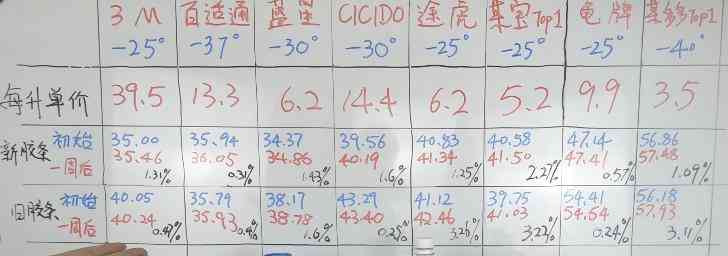 3M 百适通 蓝星 CICIDO 途虎 某宝Top1 龟牌 某多多Top1
-25° -37° -30° -30° -25° -25° -25° -40°
每升单价 39.5 13.3 6.2 14.4 6.2 5.2 9.9 3.5
新胶条 初始 35.00 35.94 34.37 39.56 40.83 40.58 47.14 56.86
一周后 35.46 36.05 34.86 40.19 41.34 41.50 47.41 57.48
1.31% 0.31% 1.43% 1.6% 1.25% 2.27% 0.57% 1.09%
旧胶条 初始 40.05 35.79 38.17 43.29 41.12 39.75 54.41 56.18
一周后 40.24 35.93 38.78 43.40 42.46 41.03 54.54 57.93
0.47% 0.4% 1.6% 0.25% 3.26% 3.22% 0.24% 3.11%